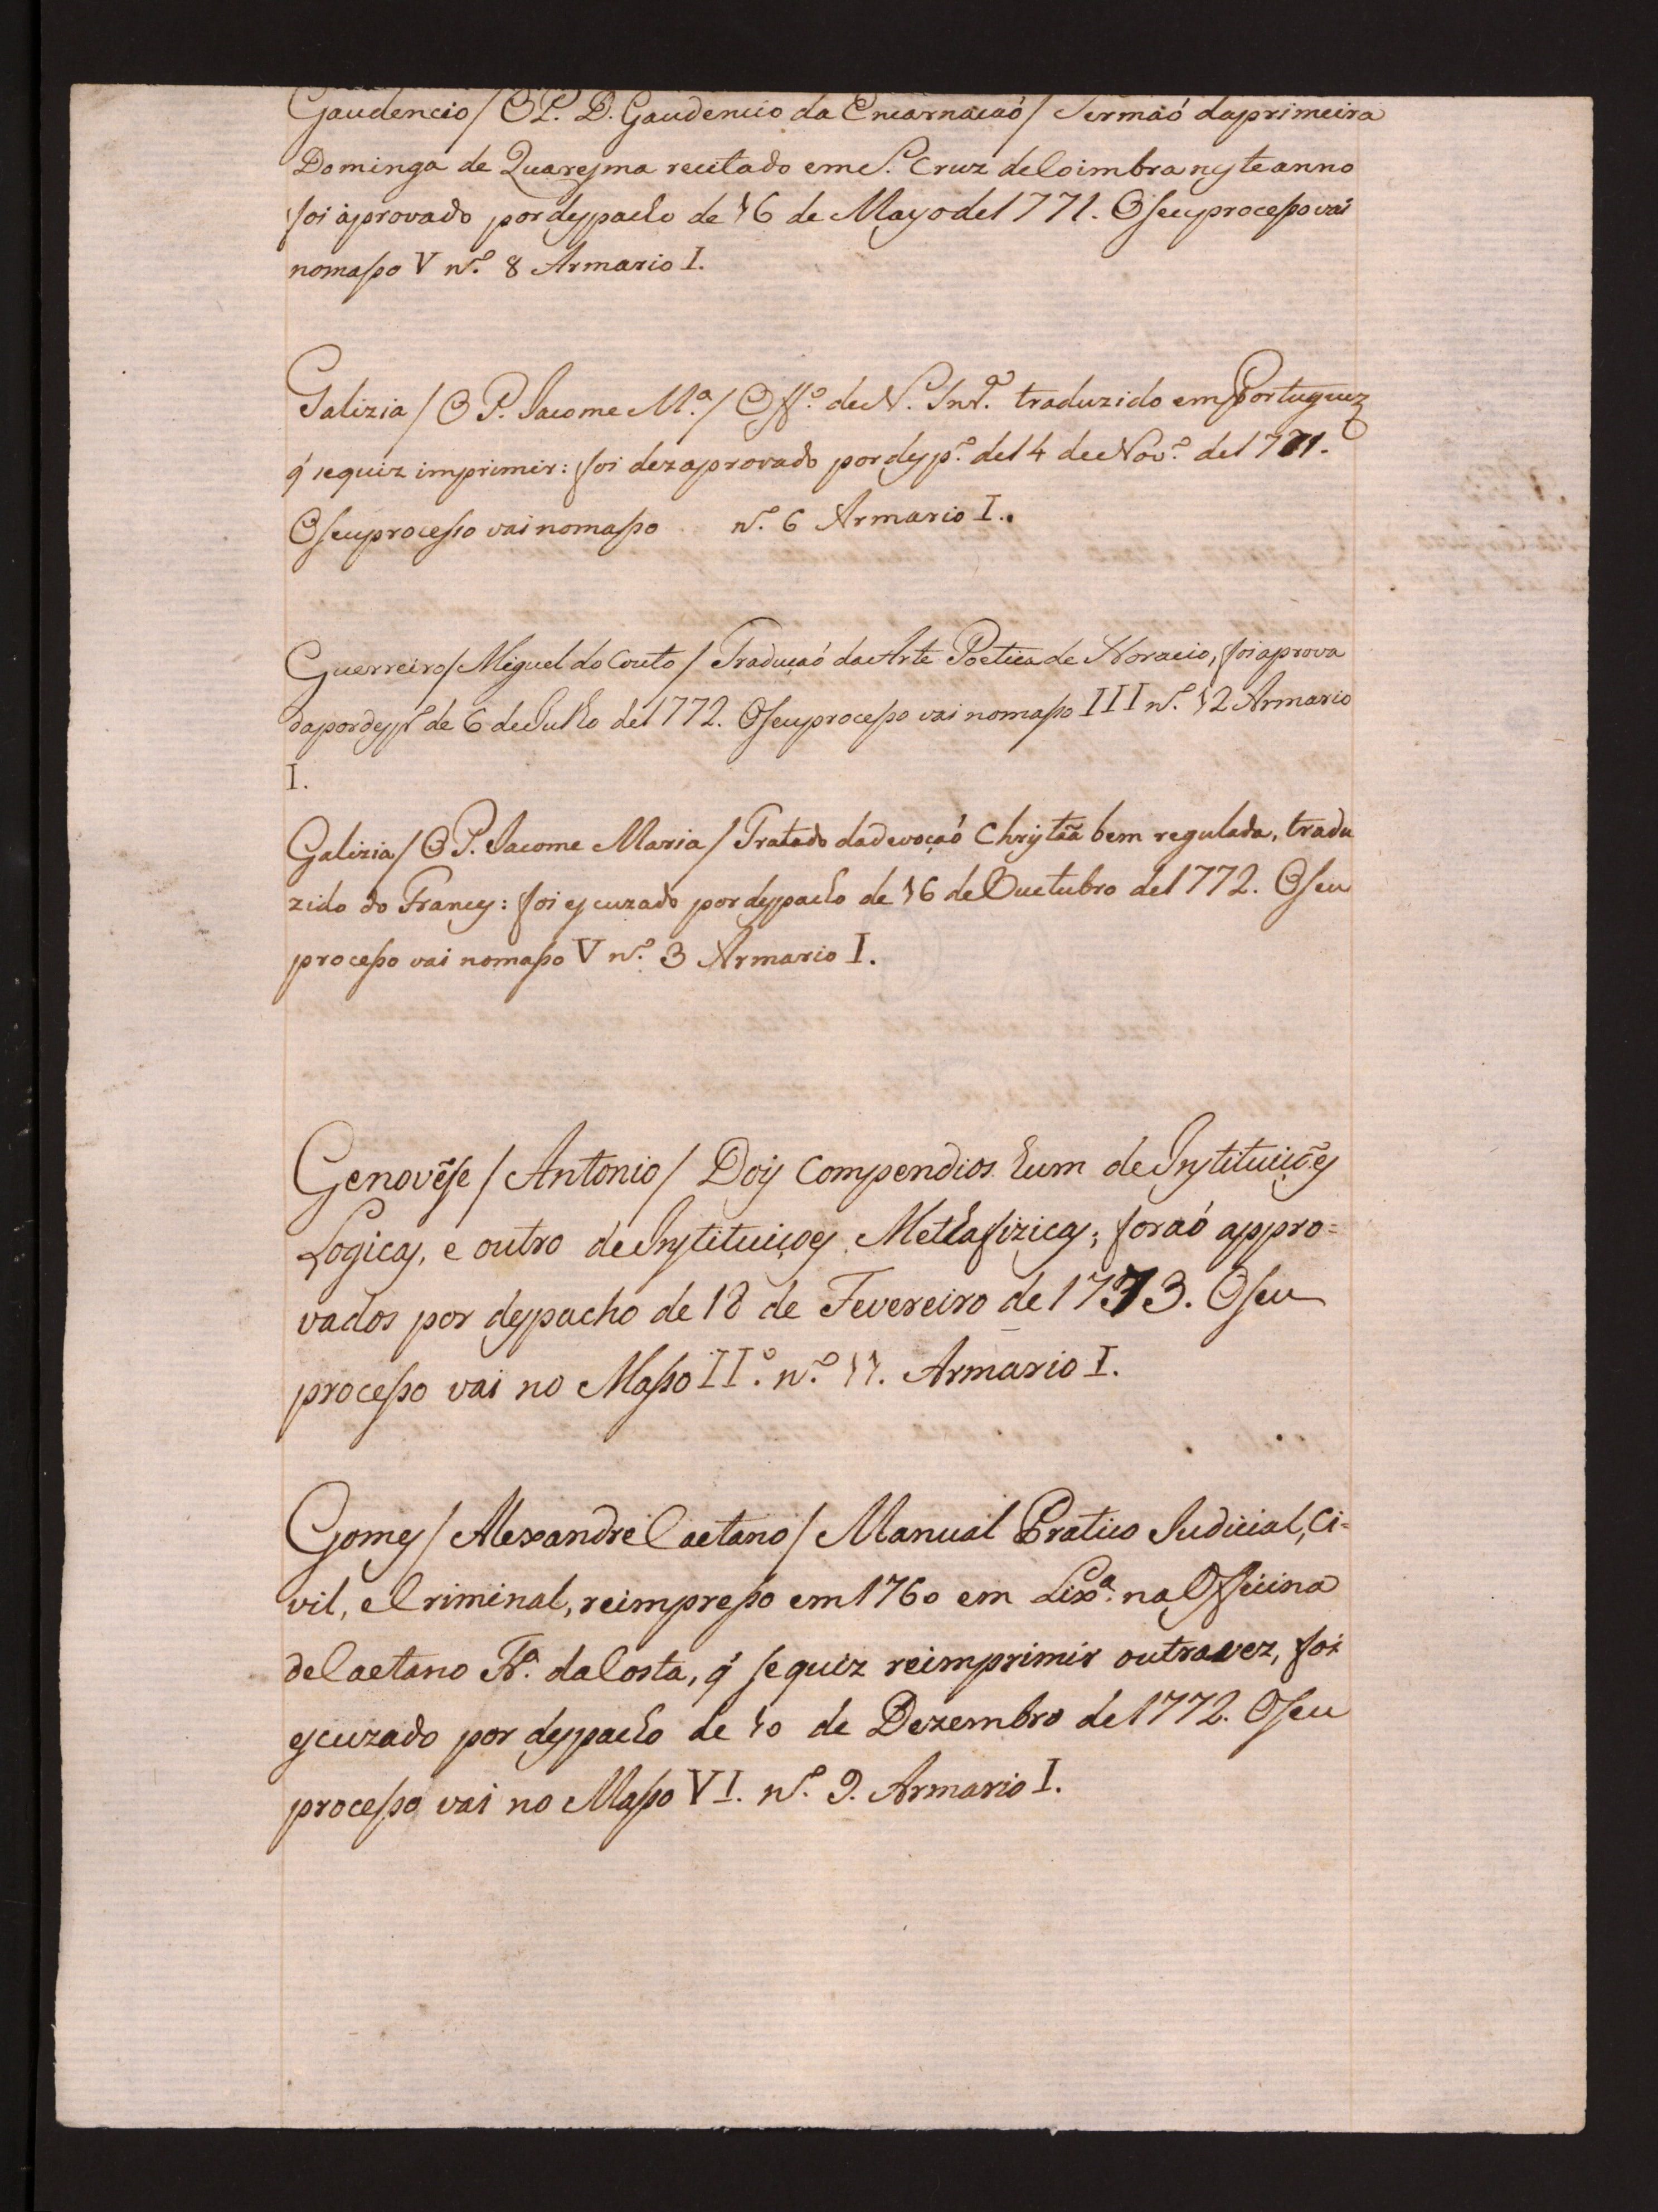 Gaudencio / O P. D. Gaudencio da Encarnacaó / Sermaó da primeira
Dominga de Quaresma recitado em S. Cruz de Coimbra neste anno
foi aprovado por despacho de 16 de Mayo de 1771. O seu processo vai
no masso V n.º 8 Armario I.
Galizia / O P. Jacome M.ª / O Off.º de N. Snr.ª traduzido em Portuguez
q̃ se quiz imprimir: foi dezaprovado por desp.º de 14 de Nov.º de 1771.
O seu processo vai no masso n.º 6 Armario I.
Guerreiro / Miguel do Couto / Traduçaó da Arte Poetica de Horacio, foi aprova
da por desp.º de 6 de Julho de 1772. O seu processo vai no masso III n.º 12 Armario
I.
Galizia / O P. Jacome Maria / Tratado da devoçaó Christãa bem regulada, tradu
zido do Frances: foi escuzado por despacho de 16 deOuctubro de 1772. O seu
processo vai no masso V n.º 3 Armario I.
Genovése / Antonio / Dois Compendios hum de Instituiçõẽs
Logicas, e outro de Instituiçoes Methafizicas; foraó appro=
vados por despacho de 18 de Fevereiro de 1773. O seu
processo vai no Masso II.º n.º 11. Armario I.
Gomes / Alexandre Caetano / Manual Pratico Judicial, Ci=
vil, e Criminal, reimpresso em 1760 em Lix.ª na Officina
de Caetano Fr.ª da Costa, q̃ se quiz reimprimir outra vez, foi
escuzado por despacho de 10 de Dezembro de 1772. O seu
processo vai no Masso VI. n.º 9. Armario I.